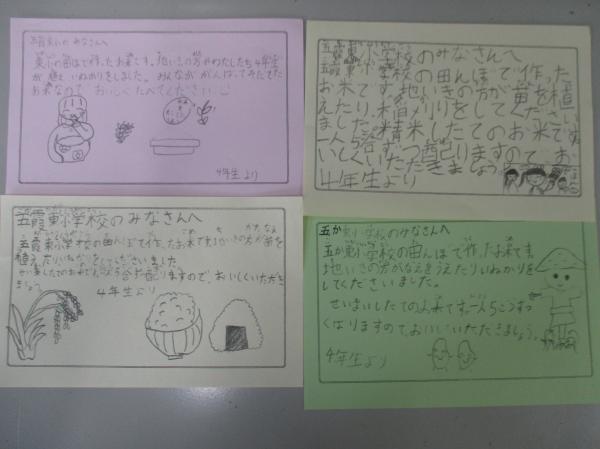 五霞東小のみなさんへ
東小の田んぼで作ったお米です。地いきの方やわたしたち4年生
が植え、いねかりをしました。みんながんばってそだてた
お米なので おいしくたべてください
4年生より
五霞東小学校のみなさんへ
五霞東小学校の田んぼで作った
お米です。地いきの方が苗を植
えたり、稲刈りをしてください
ました。精米したてのお米です。
一人5合ずつ配りますので、お
いしくいただきましょう
4年生より
五霞東小学校のみなさんへ
五霞東小学校の田んぼで作ったお米です。地いきの方が苗を
植えたりいねかりをしてくださいました。
合ずつ配りますので、おいしくいただき
ましょう
4年生より
五か東小学校のみなさんへ
五か東小学校の田んぼで作ったお米です。
地いきの方がなえをうえたりいねかりを
してくださいました。
せいまいしたてのお米です。一人5こうずつ
くばりますので、おいしくいただきましょう。
4年生より